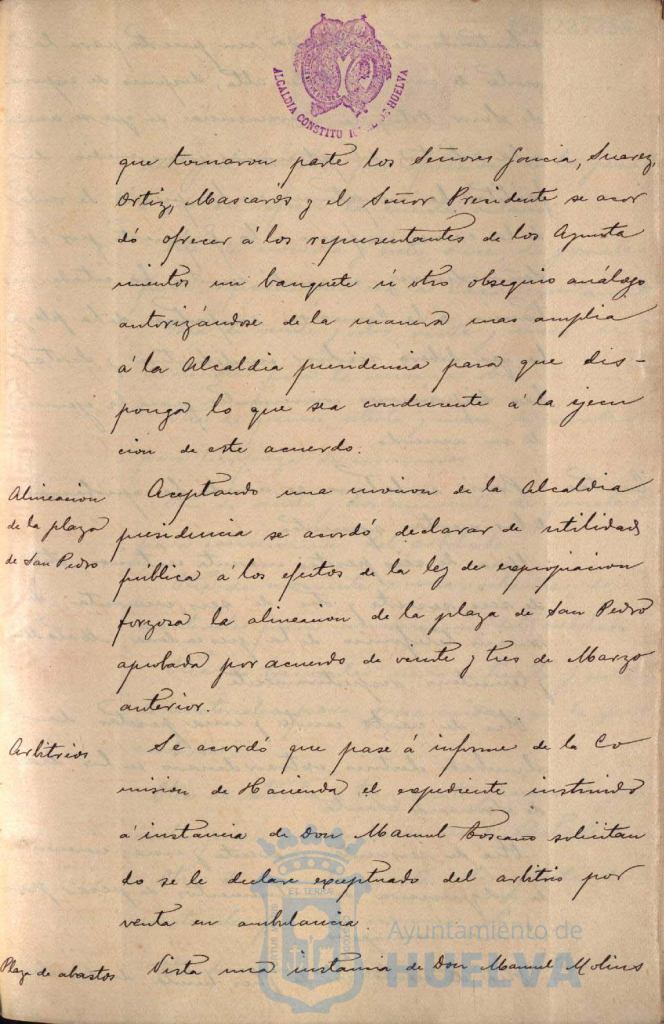 ALCALDIA CONSTITU DE HUELVA
que tomaron parte los Señores Garcia, Suarez,
Ortiz, Mascarós y el Señor Presidente se acor
dó ofrecer á los representantes de los Ayunta
mientos un banquete ú otro obsequio análogo
autorizándose de la manera mas amplia
á la Alcaldia presidencia para que dis-
ponga lo que sea conducente á la ejecu
cion de este acuerdo.
Alineacion
de la plaza
de San Pedro
Aceptando una mocion de la Alcaldia
presidencia se acordó declarar de utilidad
pública á los efectos de la ley de expropiacion
forzosa la alineacion de la plaza de San Pedro
aprobada por acuerdo de veinte y tres de Marzo
anterior.
Arbitrios
Se acordó que pase á informe de la Co
mision de Hacienda el expediente instruido
á instancia de Don Manuel Toscano solicitan
do se le declare exceptuado del arbitrio por
venta en ambulancia.
Plaza de abastos
Vista una instancia de Don Manuel Molins
Ayuntamiento de
HUELVA